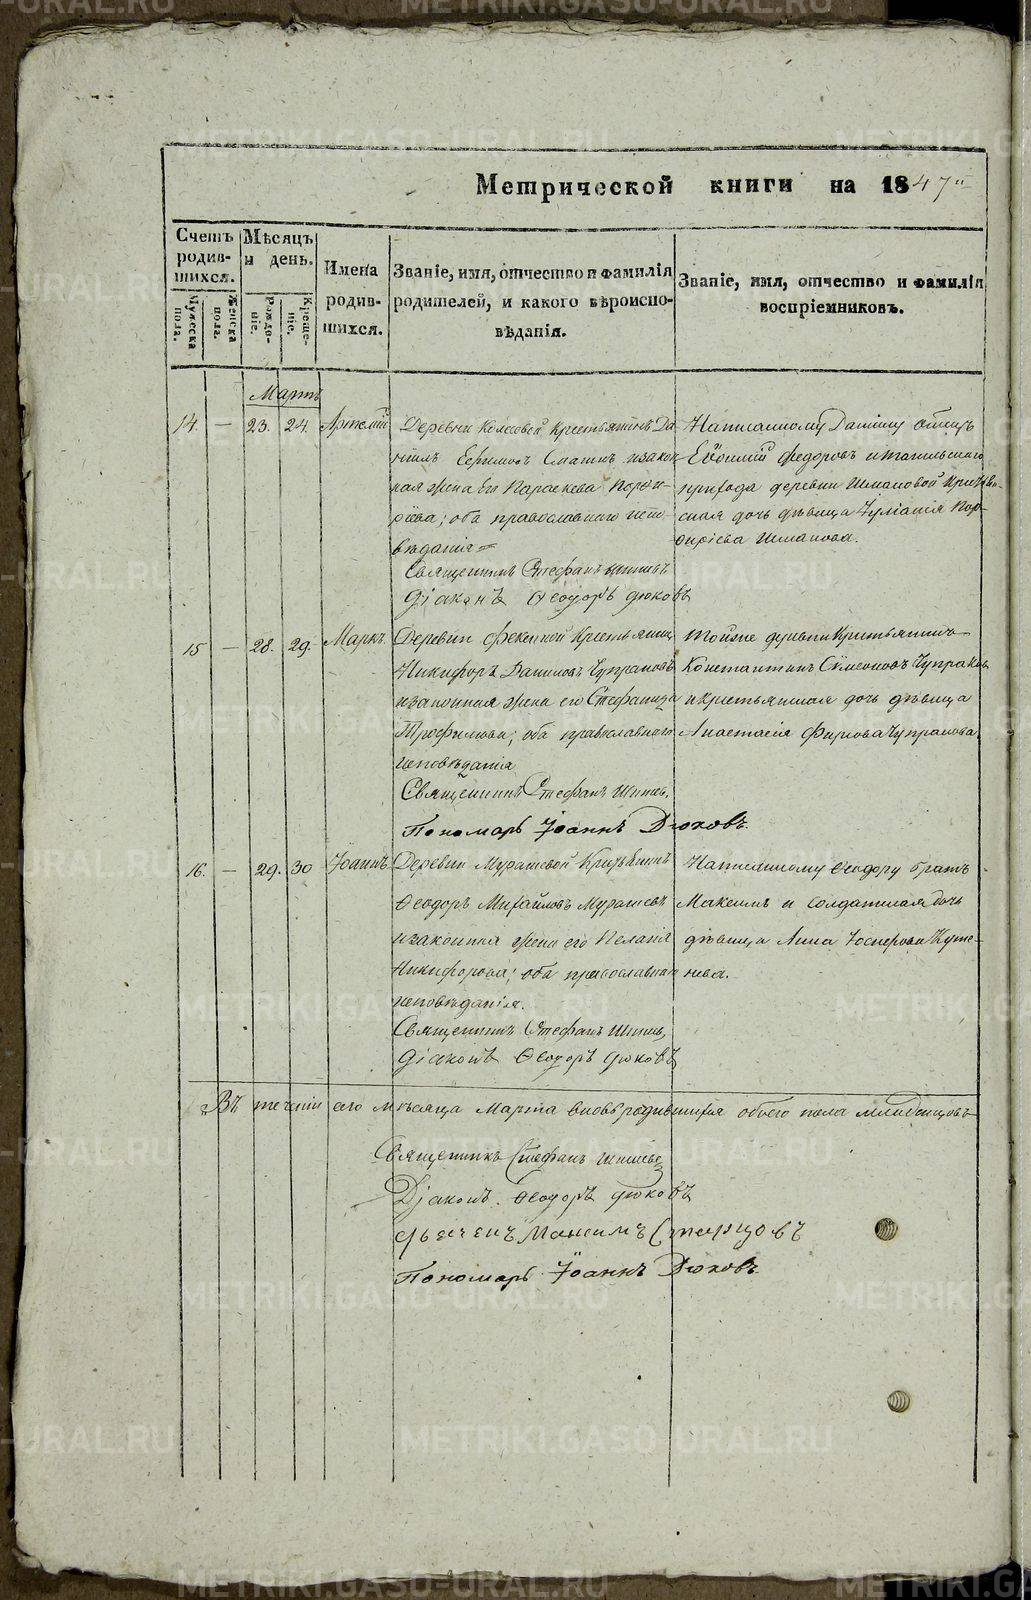 Метрической книги на 1847й
Счетъ родив-шихся.
Мужеска пола.
Женска пола.
Мѣсяцъ и день.
Рожде-ніе.
Креще-ніе.
Имена родив-шихся.
Званіе, имя, отчество и фамилія родителей, и какого вѣроиспо-вѣданія.
Званіе, имя, отчество и фамилія воспріемниковъ.
Мартъ
14. — 23. 24. Артемій
Деревни Колясовой Крестьянинъ Да-
ніилъ Ефимовъ и закон-
ная жена его Параскева Порфи-
ріева; оба православнаго испо-
вѣданія
Священникъ Стефанъ
Діаконъ Ѳеодоръ Дюковъ
Написанному Даніилу отецъ
Евфимій Федоровъ и
прихода деревни Шмаковой Кресть-
ская дочь дѣвица Іуліанія Пор-
фиріева Шмакова.
15 — 28. 29. Маркъ
Деревни Крестьянинъ
Никифоръ Даниловъ Чупраковъ
и законная жена его Стефанида
Трофимова; оба православнаго
исповѣданія
Священникъ Стефанъ
Пономарь Іоаннъ Дюковъ.
Тойже деревни Крестьянинъ
Константинъ Сѵмеоновъ Чупраковъ
и крестьянская дочь дѣвица
Анастасія Фирсова Чупракова.
16. — 29. 30 Іоаннъ
Деревни Мурашевой Крестьянинъ
Ѳеодоръ Михайловъ Мурашевъ
и законная жена его Пелагія
Никифорова; оба православнаго
исповѣданія.
Священникъ Стефанъ
Діаконъ Ѳеодоръ Дюковъ
Написанному Ѳеодору братъ
Максимъ и солдатская дочь
дѣвица Анна
нева.
Въ теченіи сего мѣсяца Марта вновь родившихся обоего пола младенцовъ
Священникъ Стефанъ
Діаконъ Ѳеодоръ Дюковъ
Дьячекъ Максимъ Старцовъ
Пономарь Іоаннъ Дюковъ
METRIKI.GASO-URAL.RU